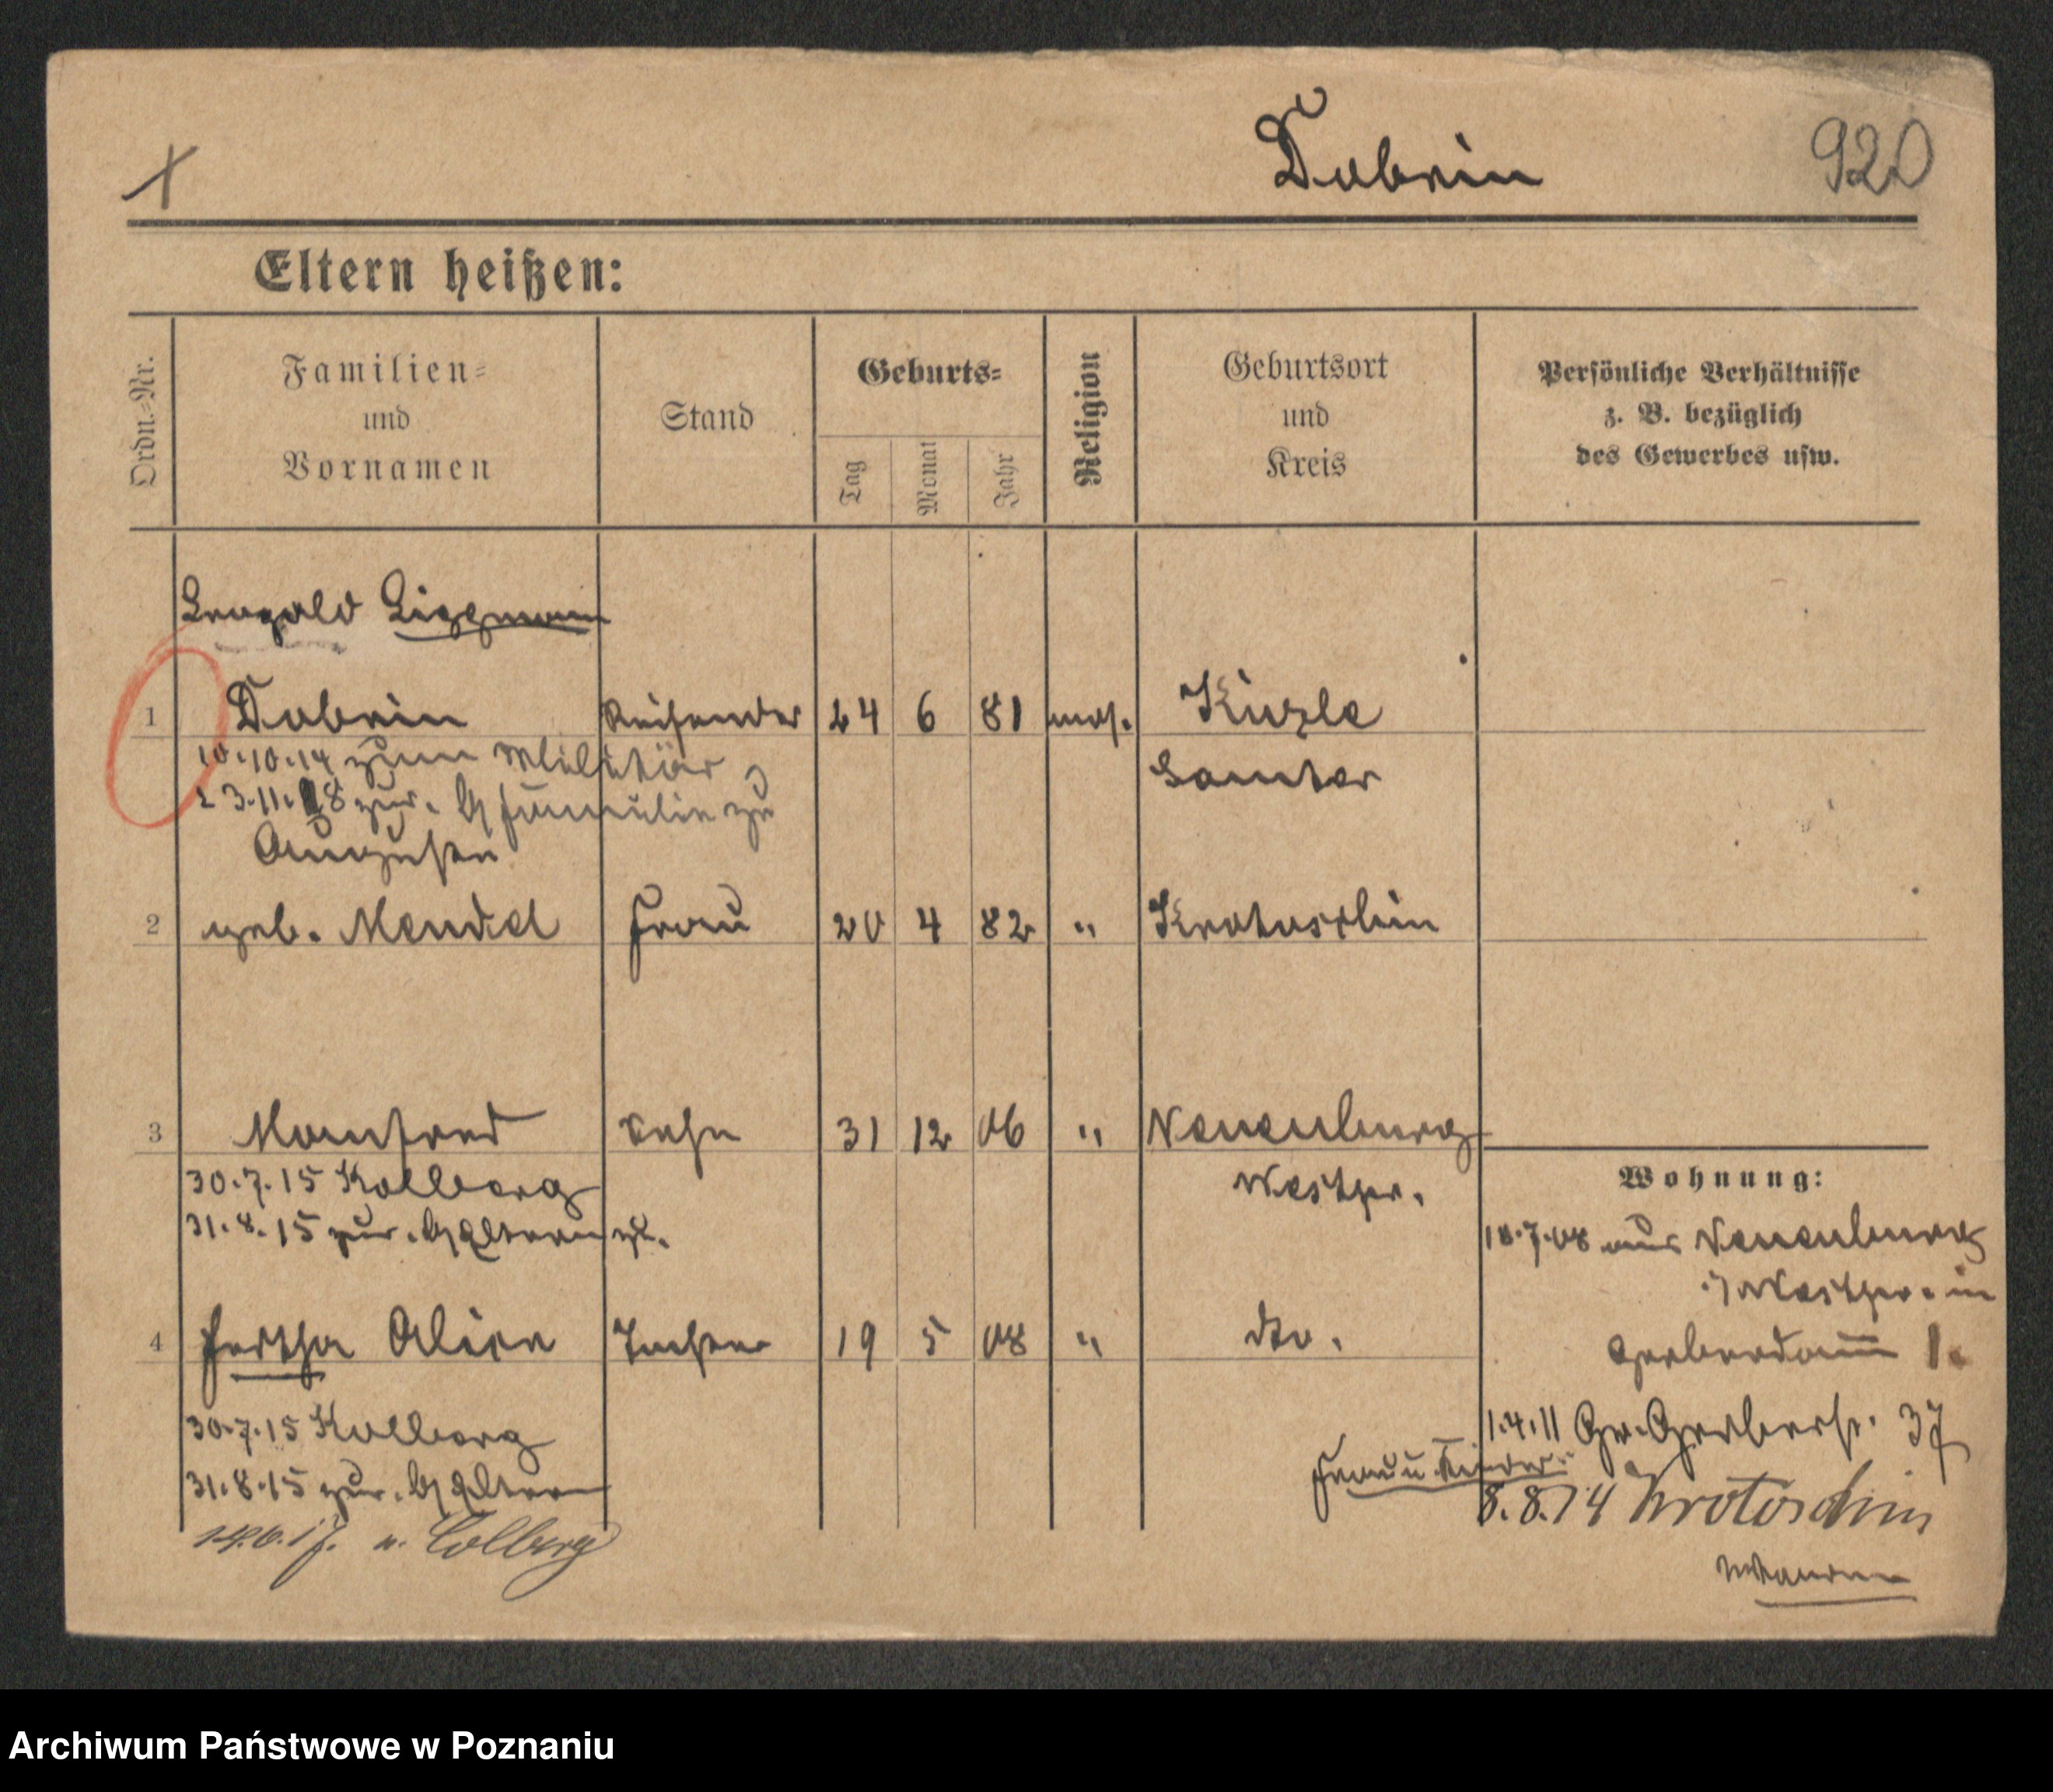 Dobrin 920
Eltern heißen:
Ordn.-Nr.
Familien-
und
Vornamen
Stand
Geburts-
Tag
Monat
Jahr
Religion
Geburtsort
und
Kreis
Persönliche Verhältnisse
z. B. bezüglich
des Gewerbes usw.
Leopold
1 Dobrin Reisender 24 6 81 mos.
Samter
10.10.14 zum Militär
zur. b/ Familie zu
2 geb. Mendel Frau 20 4 82 " Krotoschin
3 Manfred Sohn 31 12 06 " Neuenburg
Westpr.
30.7.15 Kolberg
31.8.15 zur. b/ Eltern zu.
4 Hertha Alice Tochter 19 5 08 " dto.
30.7.15 Kolberg
31.8.15 zur. b/ Eltern
n. Colberg
Wohnung:
18.7.08 aus Neuenburg
i/ Westpr. in
Gerberdamm 1.
1.4.11 Gr. Gerberstr. 37
Frau u. Kinder:
8.8.14 Krotoschin
Archiwum Państwowe w Poznaniu